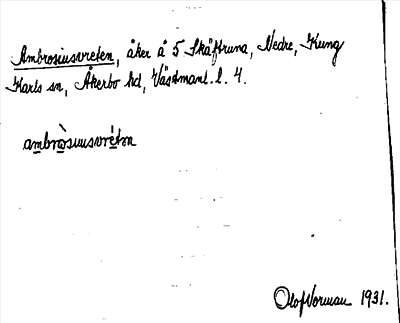 Ambrosiusvreten, åker å 5 Skäftruna, Nedre, Kung
Karls sn, Åkerbo hd, Västmanl. l. 4.
ambròsiusvrétən
Olof Vorman 1931.